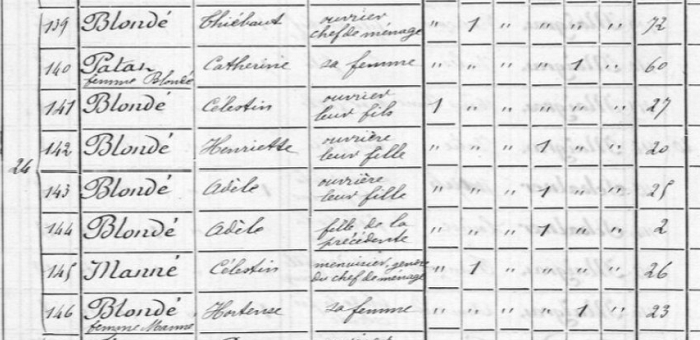 139 Blondé Thiébaut ouvrier chef de ménage " 1 " " " " 72
140 Patan femme Blondé Catherine sa femme " " " " 1 " 60
141 Blondé Célestin ouvrier leur fils 1 " " " " " 27
142 Blondé Henriette ouvrière leur fille " " " 1 " " 20
24 143 Blondé Adèle ouvrière leur fille " " " 1 " " 25
144 Blondé Adèle fille de la précédente " " " 1 " " 2
145 Manné Célestin menuisier, gendre du chef de ménage " 1 " " " " 26
146 Blondé femme Manné Hortense sa femme " " " " 1 " 23